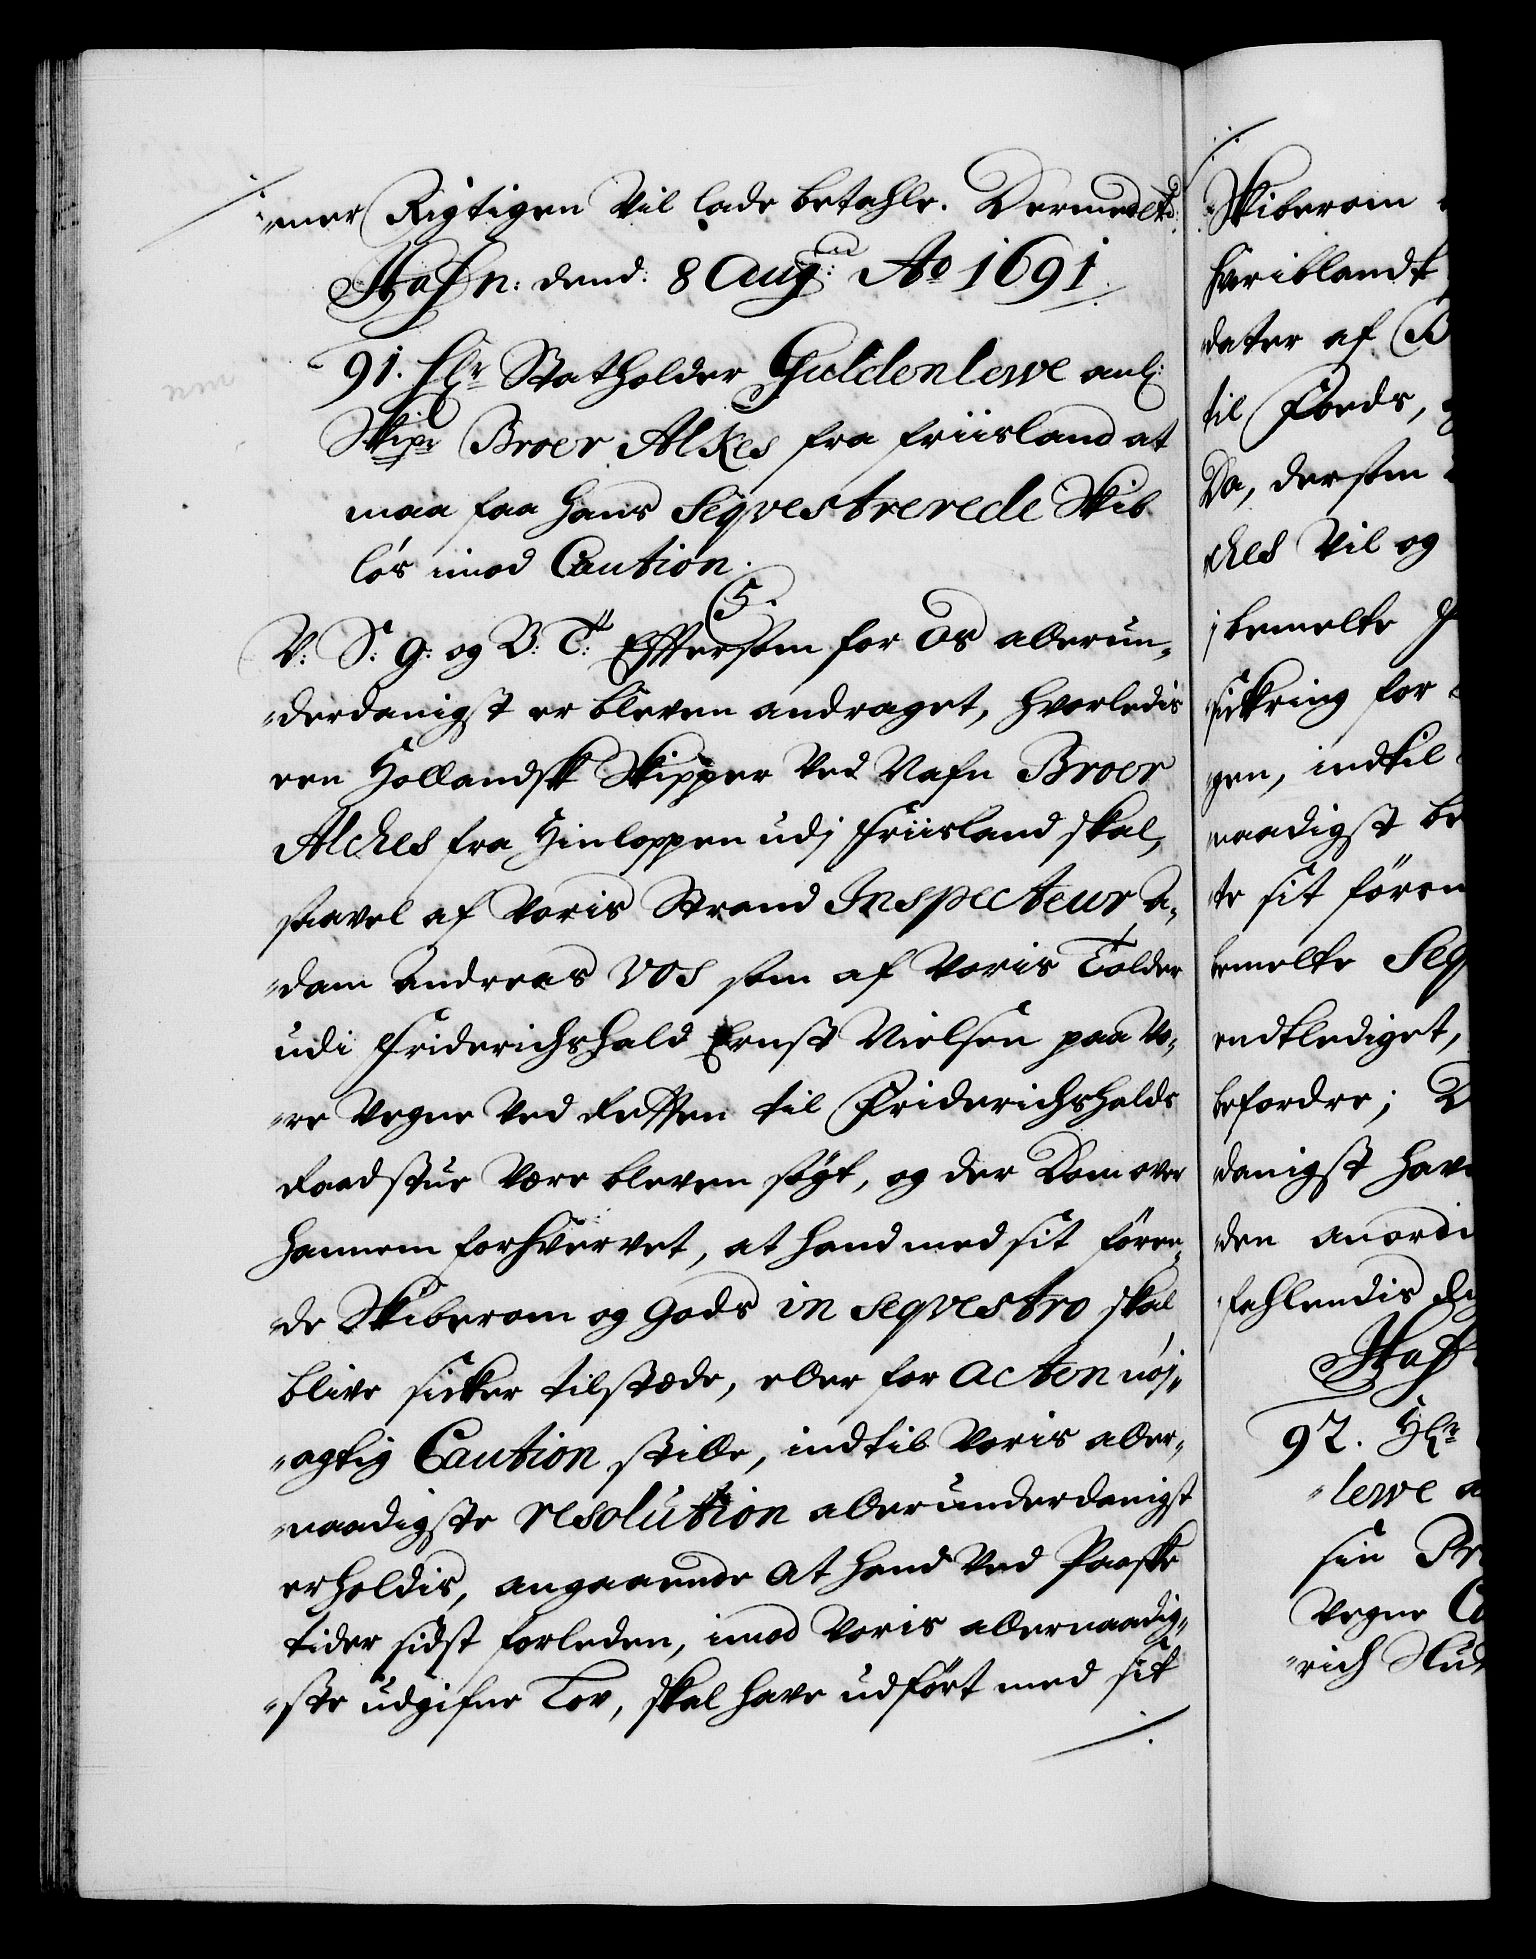 "mer Rigtigen Vil lade betahle. Dermed etc:
Hafn: dend: 8 Aug: Ao 1691.
91. Hr Statholder Guldenlewe anl:
Skipr Broer Alkes fra friisland at
maa faa hans Seqvestrerede Skib
lós imod Caution.
5.
V: S: G: og V: T: Effterson for Os allerun,,
"derdanigst er bleven andraget, hvorledis
een Hollandsk Skipper Ved Nafn Broer
Alches fra Hinloppen udj Friisland skal,
saavel af Voris Strand Inspecteur A,,
"dam Andreas Vos som af Voris Tolder
udi Friderichshald Ernst Nielsen paa Vo,,
"re Vegne Ved Retten til Friderichshalds
Raadstue Være bleven søgt, og der Dom over
hannem forhvervet, at hand med sit føren,,
"de Skiberom og Gods in seqvestro skal
blive sicker tilstæde, eller for Acten nøj,,
"agtig Caution stille, indtil Voris aller,,
"naadigste resolution allerunderdanigst
erholdis, angaaende at hand Ved Paaske
tider sidst forleden, imod Voris allernaadig,,
"ste udgifne Lov, skal have udført med sit
Skiberom
hvoriblandt
dater af
til Fords,
Da, dersom
"ches Vil og
jbemelte
"sickring for
"gen, indtil
"naadigst be
"te sit føren
bemelte Seq
endtlediget,
befordre; D
"danigst hav
den anordi
"fehlendis
Haf
92. Hr
"lewe a
sin Pr
Vegne C
"rich